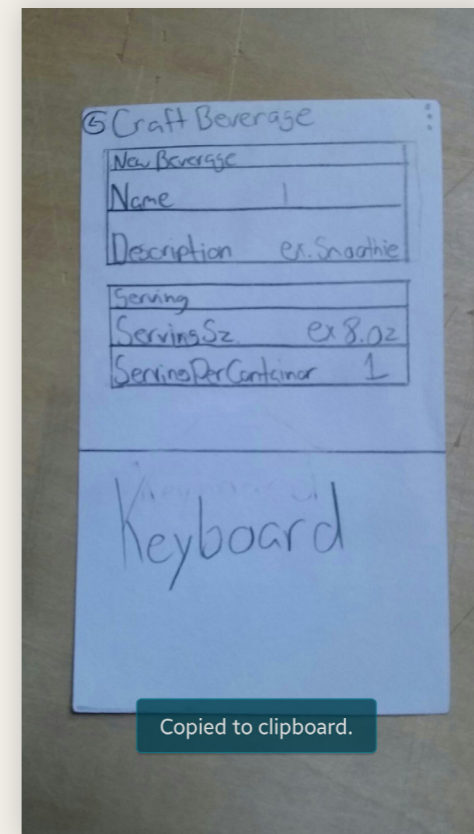 Craft Beverage
New Beverage
Name
Description ex. Smoothie
Serving
Serving Sz. ex 8.oz
Serving Per Container 1
Keyboard
Copied to clipboard.